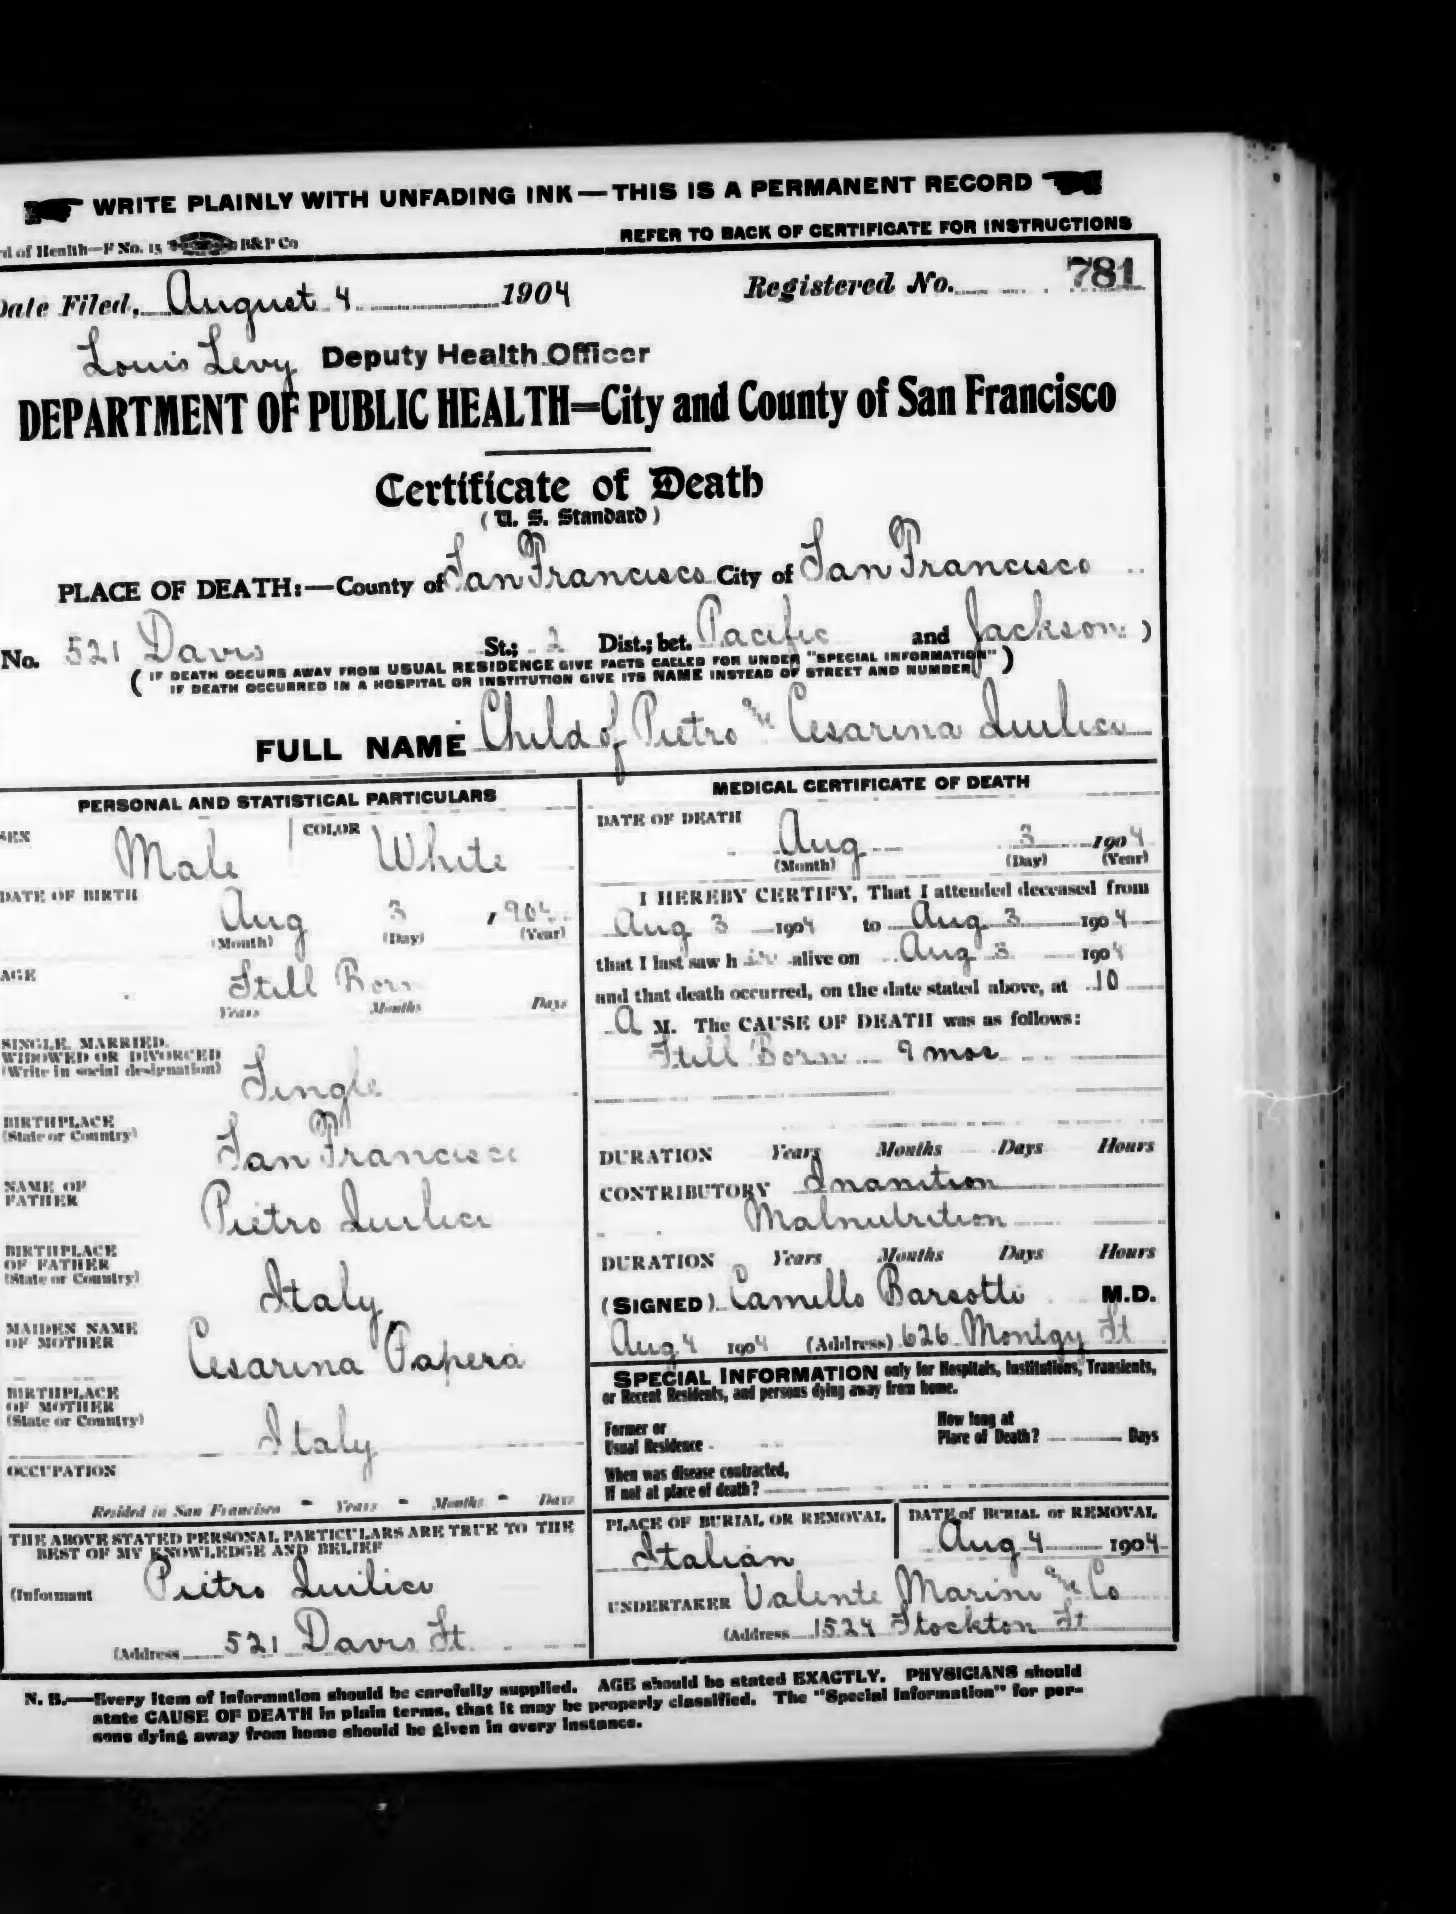 WRITE PLAINLY WITH UNFADING INK — THIS IS A PERMANENT RECORD
rd of Health—F No. 15 B&P Co
REFER TO BACK OF CERTIFICATE FOR INSTRUCTIONS
Date Filed, August 4 1904 Registered No. 781
Louis Levy Deputy Health Officer
DEPARTMENT OF PUBLIC HEALTH=City and County of San Francisco
Certificate of Death
(U. S. Standard)
PLACE OF DEATH:—County of San Francisco City of San Francisco
No. 521 Davis St.; 2 Dist.; bet. Pacific and Jackson )
( IF DEATH OCCURS AWAY FROM USUAL RESIDENCE GIVE FACTS CALLED FOR UNDER "SPECIAL INFORMATION" )
IF DEATH OCCURRED IN A HOSPITAL OR INSTITUTION GIVE ITS NAME INSTEAD OF STREET AND NUMBER.
FULL NAME Child of Pietro and Cesarina Quilici
PERSONAL AND STATISTICAL PARTICULARS
SEX Male COLOR White
DATE OF BIRTH
Aug 3 , 904
(Month) (Day) (Year)
AGE Still Born
Years Months Days
SINGLE, MARRIED,
WIDOWED OR DIVORCED
(Write in social designation) Single
BIRTHPLACE
(State or Country) San Francisco
NAME OF
FATHER Pietro Quilici
BIRTHPLACE
OF FATHER
(State or Country) Italy
MAIDEN NAME
OF MOTHER Cesarina Papera
BIRTHPLACE
OF MOTHER
(State or Country) Italy
OCCUPATION
Resided in San Francisco - Years - Months - Days
THE ABOVE STATED PERSONAL PARTICULARS ARE TRUE TO THE
BEST OF MY KNOWLEDGE AND BELIEF
(Informant Pietro Quilici
(Address 521 Davis St
MEDICAL CERTIFICATE OF DEATH
DATE OF DEATH
Aug 3 1904
(Month) (Day) (Year)
I HEREBY CERTIFY, That I attended deceased from
Aug 3 1904 to Aug 3 1904
that I last saw h im alive on Aug 3 1904
and that death occurred, on the date stated above, at 10
A M. The CAUSE OF DEATH was as follows:
Still Born 9 mos
DURATION Years Months Days Hours
CONTRIBUTORY Inanition
Malnutrition
DURATION Years Months Days Hours
(SIGNED) Camillo Barsotti M.D.
Aug 4 1904 (Address) 626 Montgy St
SPECIAL INFORMATION only for Hospitals, Institutions, Transients,
or Recent Residents, and persons dying away from home.
Former or
Usual Residence
How long at
Place of Death? Days
When was disease contracted,
If not at place of death?
PLACE OF BURIAL OR REMOVAL
Italian
DATE of BURIAL or REMOVAL
Aug 4 1904
UNDERTAKER Valente Marini and Co
(Address 1524 Stockton St
N. B.—Every item of information should be carefully supplied. AGE should be stated EXACTLY. PHYSICIANS should
state CAUSE OF DEATH in plain terms, that it may be properly classified. The "Special Information" for per-
sons dying away from home should be given in every instance.